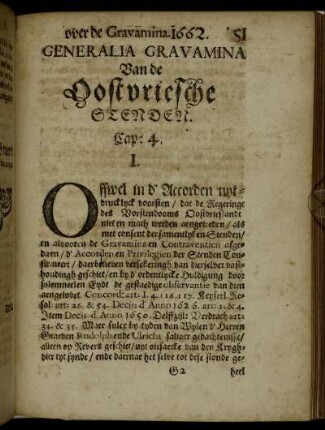 over de Gravamina. 1662. 51
GENERALIA GRAVAMINA
Van de
Oostvriesche
STENDEN.
Cap: 4.
I.
Offwel in d' Accorden uyt-
drucklyck voorsien / dat de Regeringe
des Vorstendooms Oostvrieslandt
niet en mach worden aengetreden / als
met consent der samentlyken Stenden/
en alvooren de Gravamina en Contraventien afge-
daen / d' Accorden en Privilegien der Stenden Con-
firmeert / daerbeneven versekeringh van dierselver vast-
houdingh geschiet / en by d' ordentlycke Huldigung door
solemneelen Eydt de gestaedige observantie van dien
aengelovet Concord: art: 1. 4. 116. 117. Keyserl. Re-
sol: art: 26. & 54. Decis: d' Anno 1626. art: 1. & 4.
Item Decis: d' Anno 1650. Delffzylse Verdrach art:
34. & 35. Maer sulcx by tyden van Wylen d' Herren
Graeven Rudolphende Ulrichs saliger gedachtenisse/
alleen op Revers geschiet / uyt oirsaecke van den Krygh-
der tyt synde / ende daernae het selve tot dese stonde ge-
G2 heel